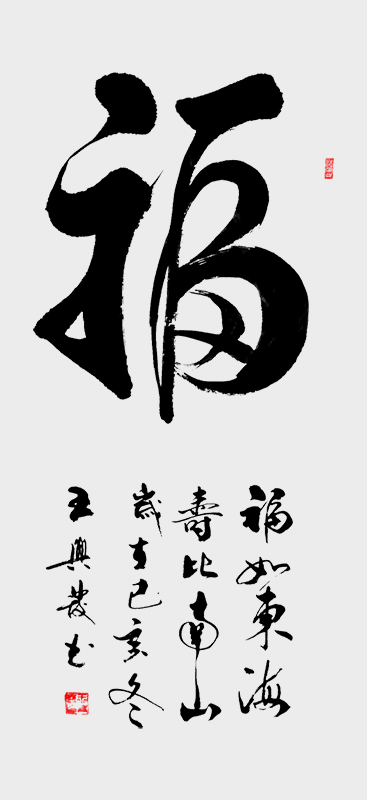 福
福如東海
壽比南山
歲在己亥冬
王興發書